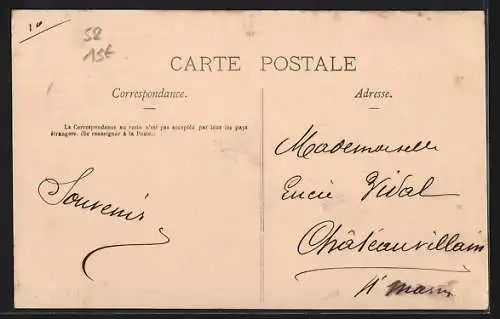 52
15€
CARTE POSTALE
Correspondance.
Adresse.
La Correspondance au recto n'est pas acceptée par tous les pays
étrangers. (Se renseigner à la Poste.)
Souvenir
Mademoiselle
Vidal
Châteauvillain
Hte Marne